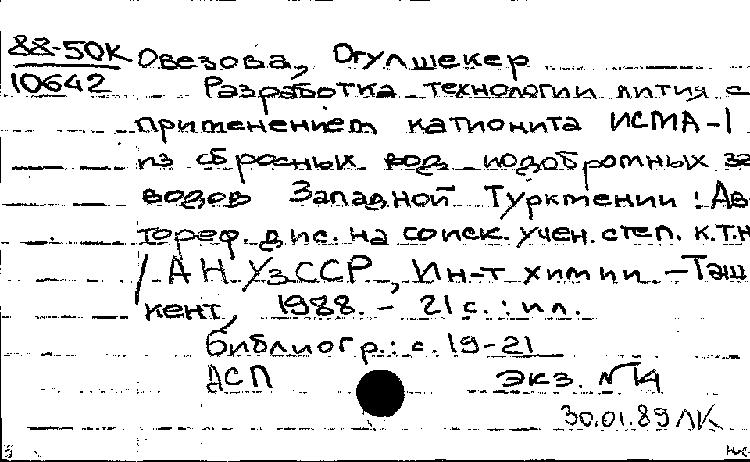 88-50К Овезова, Огулшекер
10642 Разработка технологии лития с
применением катионита ИСМА-1
из сбросных вод иодобромных за
водов Западной Туркмении : Ав
тореф. дис. на соиск. учен. степ. к.т.н
/ АН УзССР, Ин-т химии – Таш
кент, 1988. – 21 с. : ил.
Библиогр.: с. 19-21
ДСП Экз. №14
30.01.89 ЛК